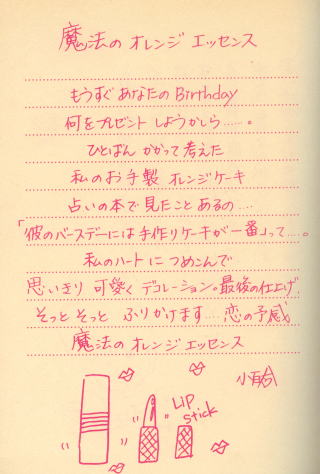 魔法の オレンジ エッセンス
もうすぐ あなたの Birthday
何を プレゼント しようかしら……。
ひとばん かかって 考えた
私の お手製 オレンジケーキ
占いの本で 見たこと あるの…
「彼のバースデーには 手作りケーキが 一番」って…。
私のハートに つめこんで
思いきり 可愛く デコレーション。最後の仕上げ
そっと そっと ふりかけます… 恋の予感
魔法の オレンジ エッセンス
小百合
LIP
stick